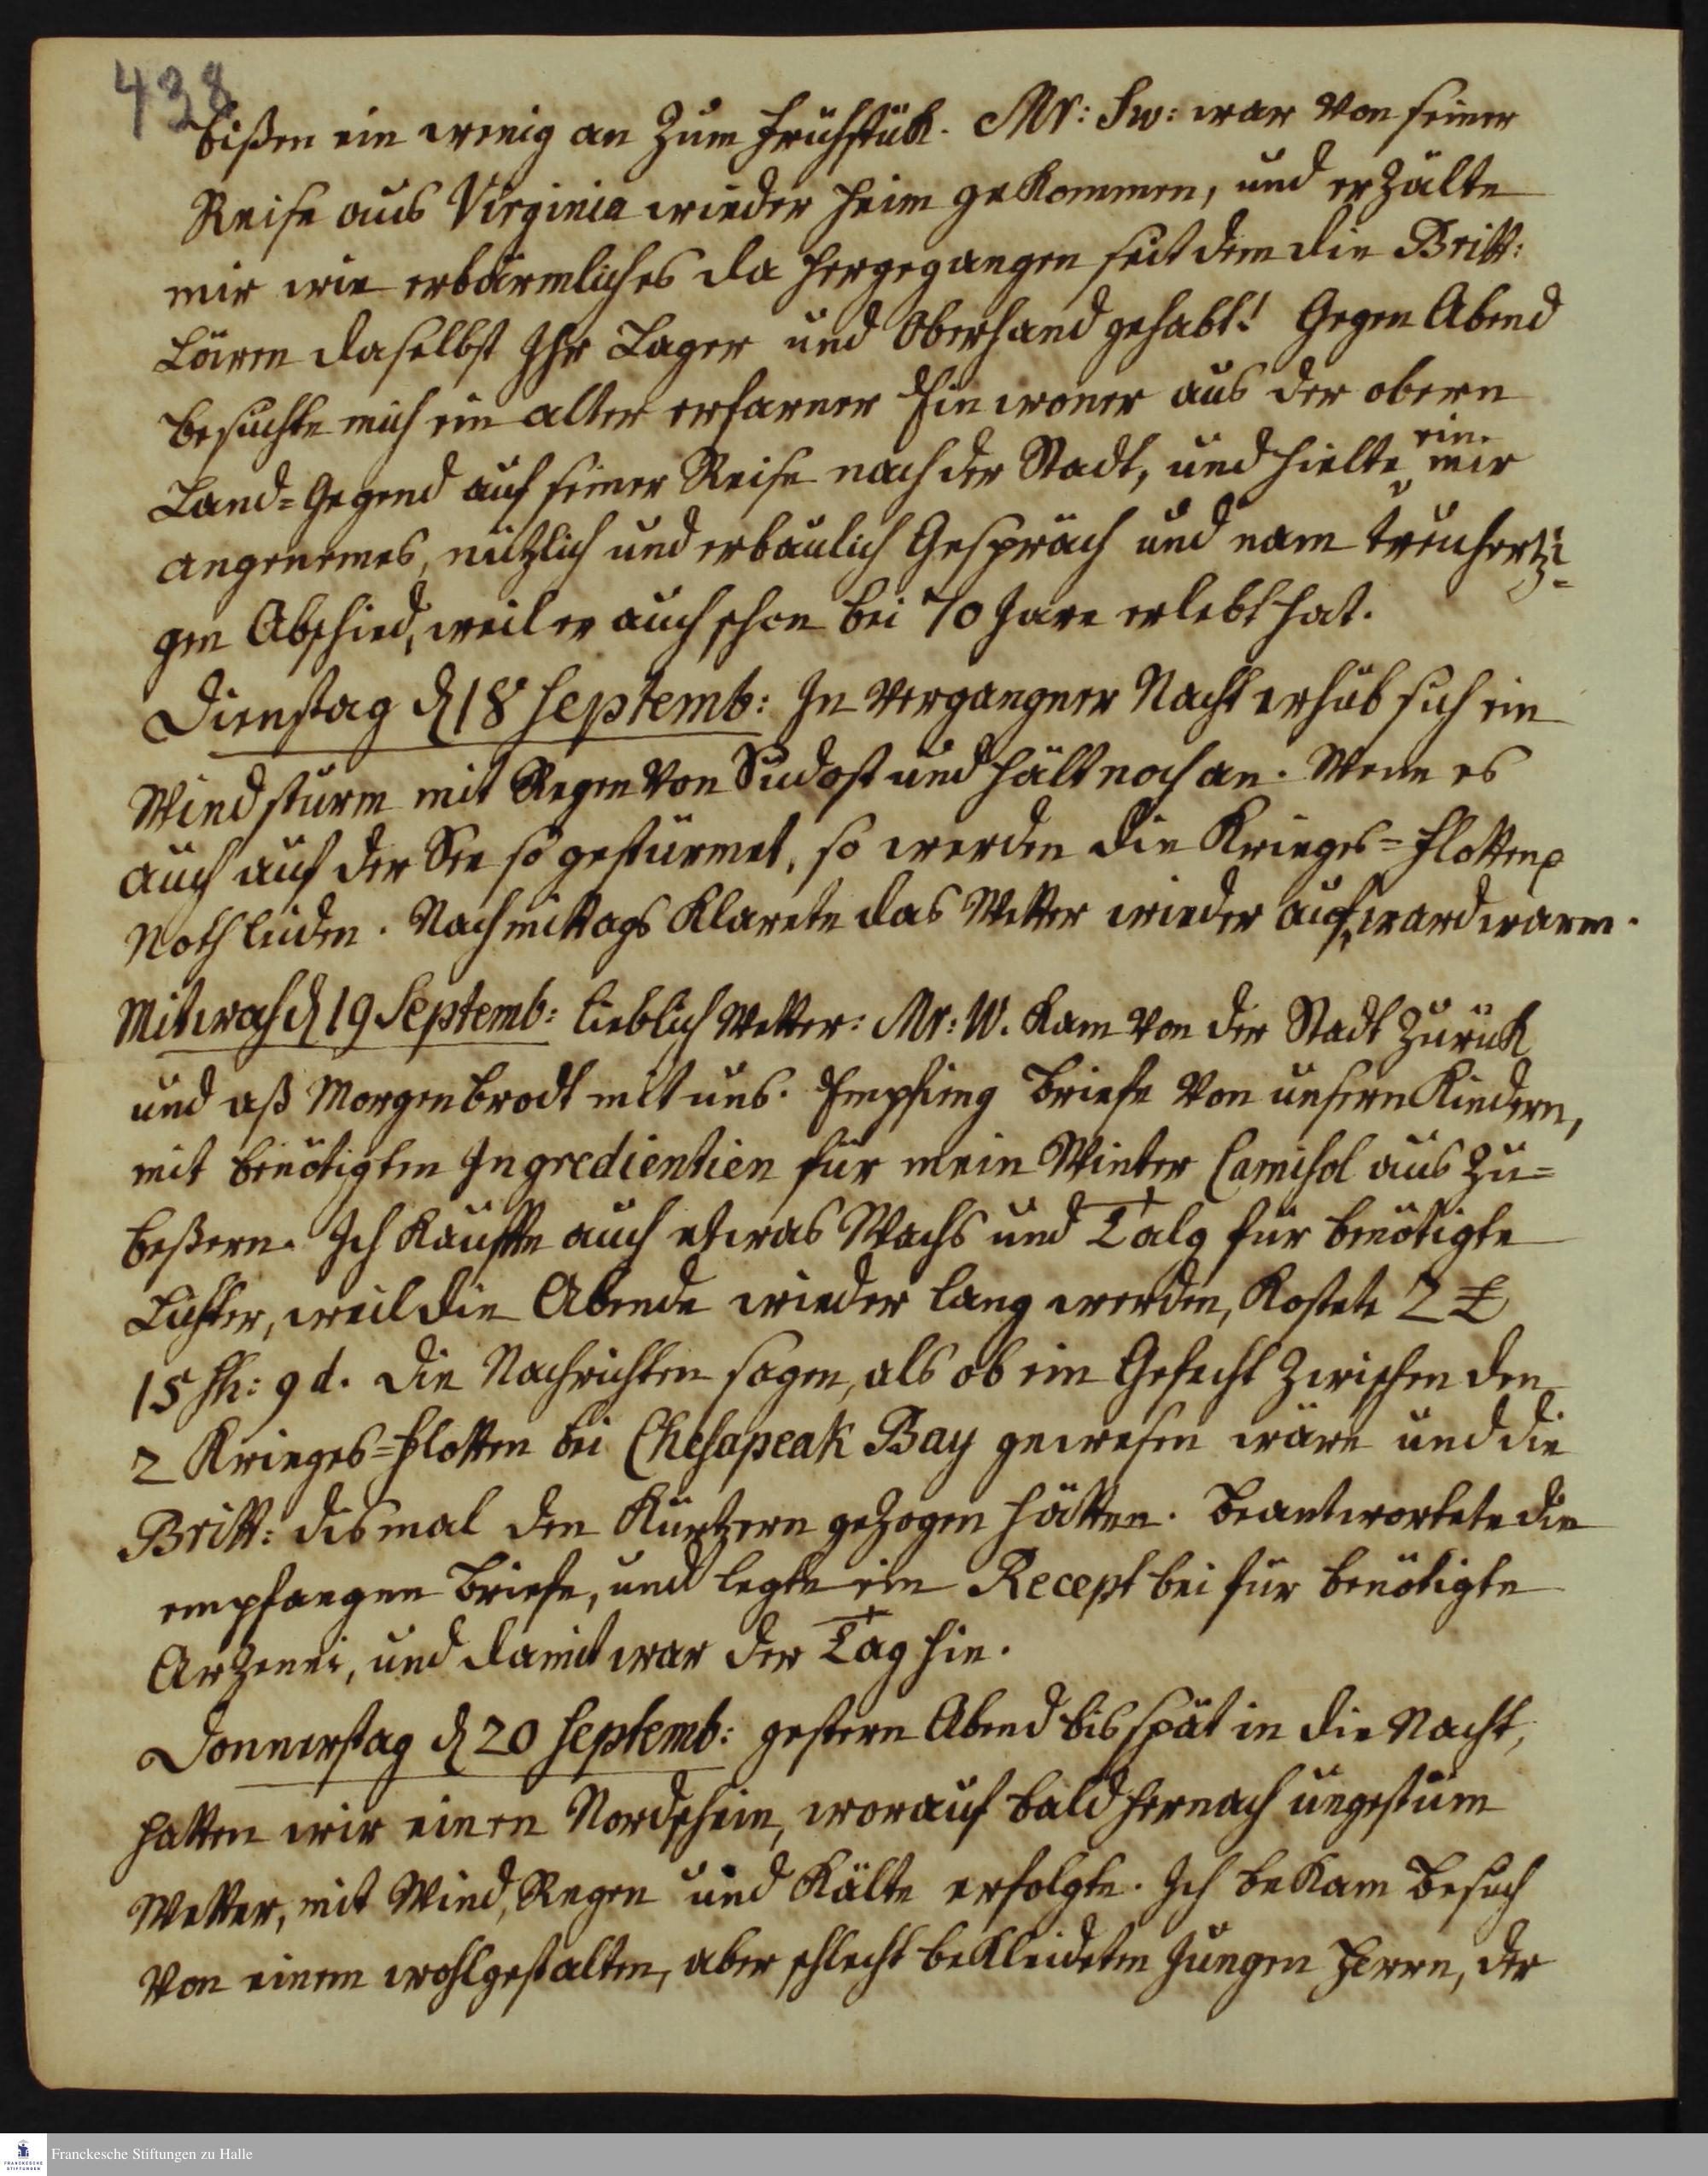 438
bißen ein wenig an zum Frühstük. Mr: Sw: war von seiner
Reise aus Virginia wieder heim gekommen, und erzälte
mir wie erbärmlich es da hergegangen seit dem die Britt:
Lären daselbst Ihr Lager und Oberhand gehabt! Gegen Abend
besuchte mich ein alter erfarner Einwoner aus der obern
Land=Gegend auf seiner Reise nach der Stadt, und hielte mir ein
angenemes, nützlich und erbaulich Gespräch und nam treuhertzi=
gen Abschied, weil er auch schon bei 70 Jare erlebt hat.
Dienstag d 18 Septemb: In vergangner Nacht erhub sich ein
Windsturm mit Regen von Sudost und hält noch an. Wenn es
auch auf der See so gestürmet, so werden die Krieges=Flotten
Noth leiden. Nachmittags klarete das Wetter wieder auf, ward warm.
Mitwoch d 19 Septemb: lieblich Wetter: Mr: W. kam von der Stadt zurük
und aß Morgenbrodt mit uns. Empfieng Briefe von unsern Kindern,
mit benötigten Ingredientien für mein Winter Camisol auszu=
beßern. Ich kaufte auch etwas Wachs und Talg für benötigte
Lichter, weil die Abende wieder lang werden, kostete 2 £
15 sh: 9 d. Die Nachrichten sagen, als ob ein Gefecht zwischen den
2 Krieges=Flotten bei Chesapeak Bay gewesen wäre und die
Britt: dismal den Kürtzern gezogen hätten. Beantwortete die
empfangnen Briefe, und legte ein Recept bei für benötigte
Arzenei, und damit war der Tag hin.
Donnerstag d 20 Septemb: gestern Abend bis spät in die Nacht,
hatten wir einen Nordschein, worauf bald hernach ungestüm
Wetter, mit Wind, Regen und Kälte erfolgte. Ich bekam Besuch
von einem wohlgestalten, aber schlecht bekleideten jungen Herrn, der
Franckesche Stiftungen zu Halle